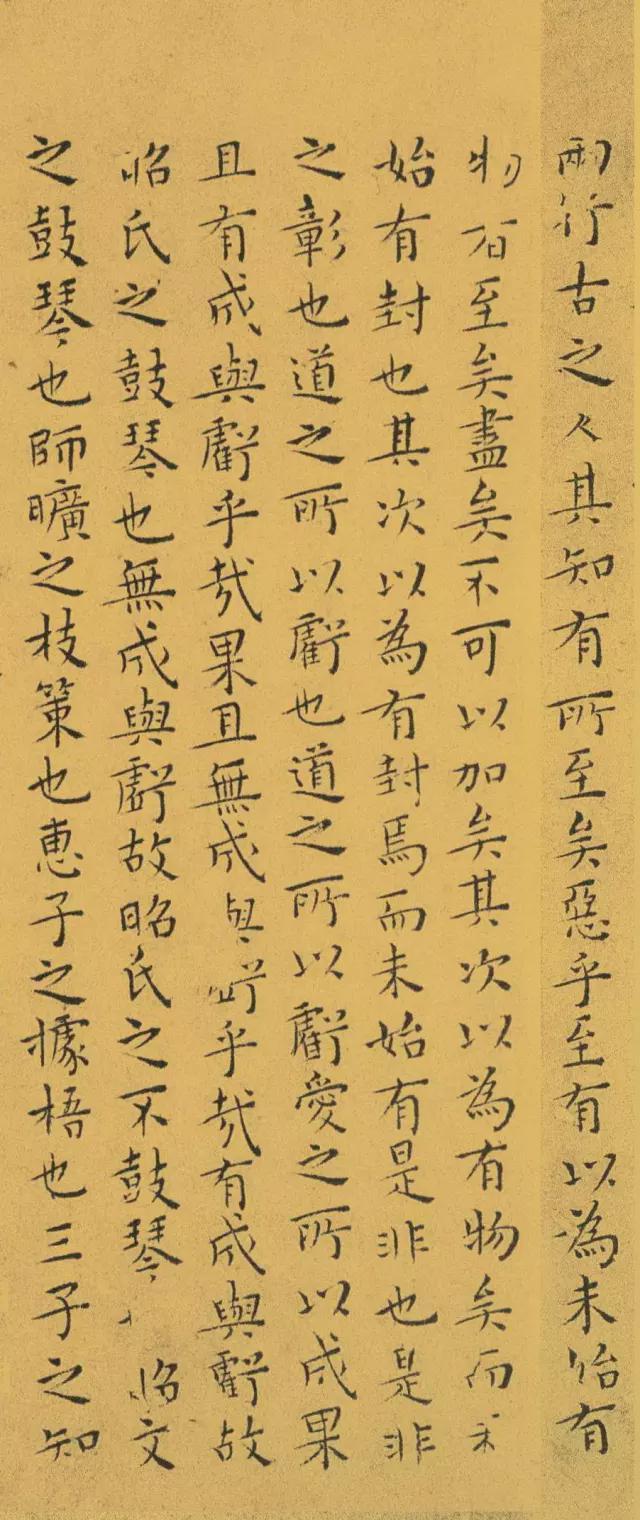 兩行古之人其知有所至矣惡乎至有以為未始有
物者至矣盡矣不可以加矣其次以為有物矣而未
始有封也其次以為有封焉而未始有是非也是非
之彰也道之所以虧也道之所以虧愛之所以成果
且有成與虧乎哉果且無成與虧乎哉有成與虧故
昭氏之鼓琴也無成與虧故昭氏之不鼓琴也昭文
之鼓琴也師曠之枝策也惠子之據梧也三子之知